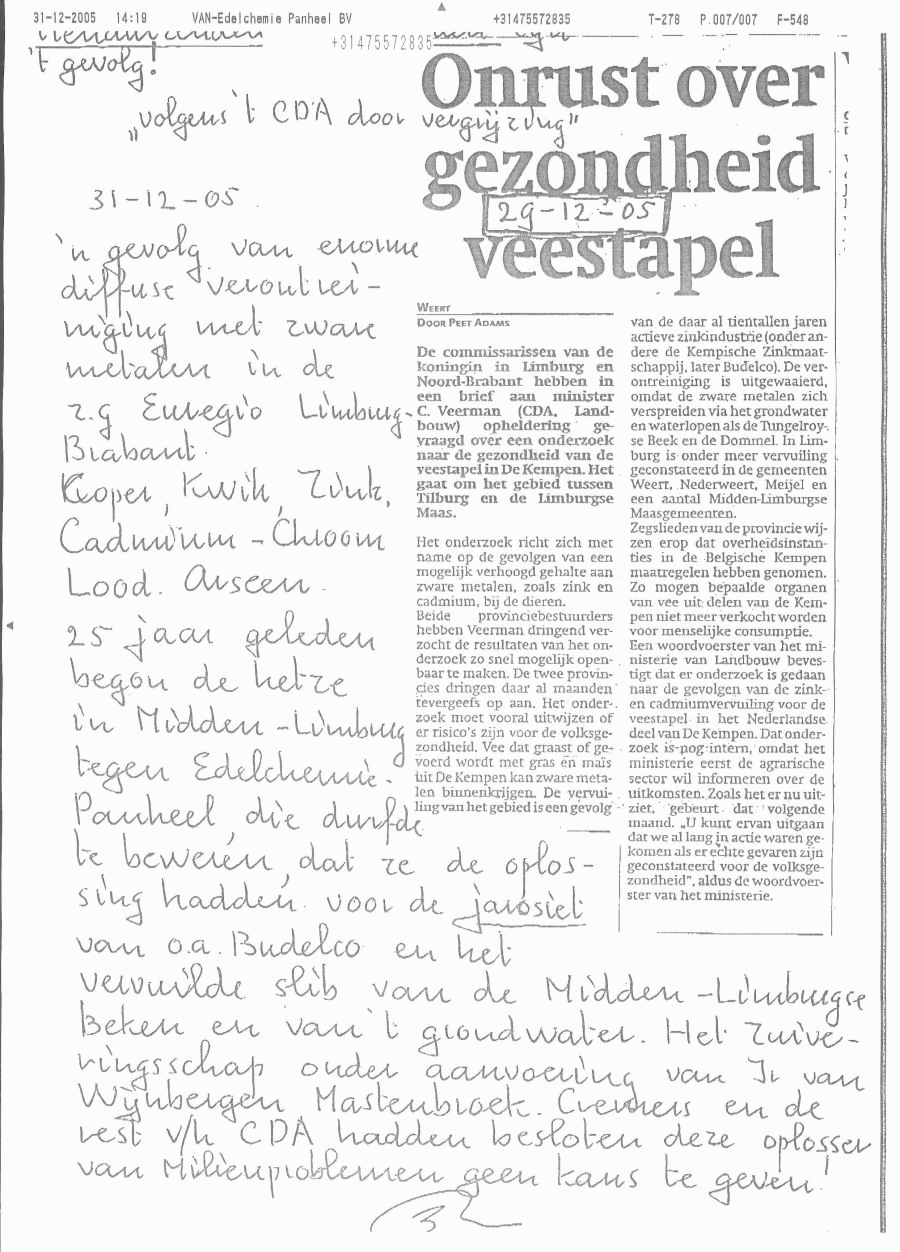 31-12-2005 14:19 VAN-Edelchemie Panheel BV +31475572835 T-278 P.007/007 F-548
+31475572835
't gevolg!
„volgens 't CDA door vergrijzing"
31-12-05
'n gevolg van enorme
diffuse verontrei-
niging met zware
metalen in de
z.g Euregio Limburg-
Brabant.
Koper, Kwik, Zink,
Cadmium - Chroom
Lood. Arseen.
25 jaar geleden
begon de hetze
in Midden-Limburg
tegen Edelchemie-
Panheel, die durfde
te beweren, dat ze de oplos-
sing hadden voor de jarosiet
van o.a. Budelco en het
vervuilde slib van de Midden-Limburgse
Beken en van 't grondwater. Het Zuive-
ringsschap onder aanvoering van Ir van
Wijnbergen, Mastenbroek. Cremers en de
rest v/h CDA hadden besloten deze oplosser
van Milieuproblemen geen kans te geven!
Onrust over
gezondheid
29-12-05
veestapel
WEERT
DOOR PEET ADAMS
De commissarissen van de
koningin in Limburg en
Noord-Brabant hebben in
een brief aan minister
C. Veerman (CDA, Land-
bouw) opheldering ge-
vraagd over een onderzoek
naar de gezondheid van de
veestapel in De Kempen. Het
gaat om het gebied tussen
Tilburg en de Limburgse
Maas.
Het onderzoek richt zich met
name op de gevolgen van een
mogelijk verhoogd gehalte aan
zware metalen, zoals zink en
cadmium, bij de dieren.
Beide provinciebestuurders
hebben Veerman dringend ver-
zocht de resultaten van het on-
derzoek zo snel mogelijk open-
baar te maken. De twee provin-
cies dringen daar al maanden
tevergeefs op aan. Het onder-
zoek moet vooral uitwijzen of
er risico's zijn voor de volksge-
zondheid. Vee dat graast of ge-
voerd wordt met gras en mais
uit De Kempen kan zware meta-
len binnenkrijgen. De vervui-
ling van het gebied is een gevolg
van de daar al tientallen jaren
actieve zinkindustrie (onder an-
dere de Kempische Zinkmaat-
schappij, later Budelco). De ver-
ontreiniging is uitgewaaierd,
omdat de zware metalen zich
verspreiden via het grondwater
en waterlopen als de Tungelroy-
se Beek en de Dommel. In Lim-
burg is onder meer vervuiling
geconstateerd in de gemeenten
Weert, Nederweert, Meijel en
een aantal Midden-Limburgse
Maasgemeenten.
Zegslieden van de provincie wij-
zen erop dat overheidsinstan-
ties in de Belgische Kempen
maatregelen hebben genomen.
Zo mogen bepaalde organen
van vee uit delen van de Kem-
pen niet meer verkocht worden
voor menselijke consumptie.
Een woordvoerster van het mi-
nisterie van Landbouw beves-
tigt dat er onderzoek is gedaan
naar de gevolgen van de zink-
en cadmiumvervuiling voor de
veestapel in het Nederlandse
deel van De Kempen. Dat onder-
zoek is nog intern, omdat het
ministerie eerst de agrarische
sector wil informeren over de
uitkomsten. Zoals het er nu uit-
ziet, gebeurt dat volgende
maand. „U kunt ervan uitgaan
dat we al lang in actie waren ge-
komen als er echte gevaren zijn
geconstateerd voor de volksge-
zondheid", aldus de woordvoer-
ster van het ministerie.